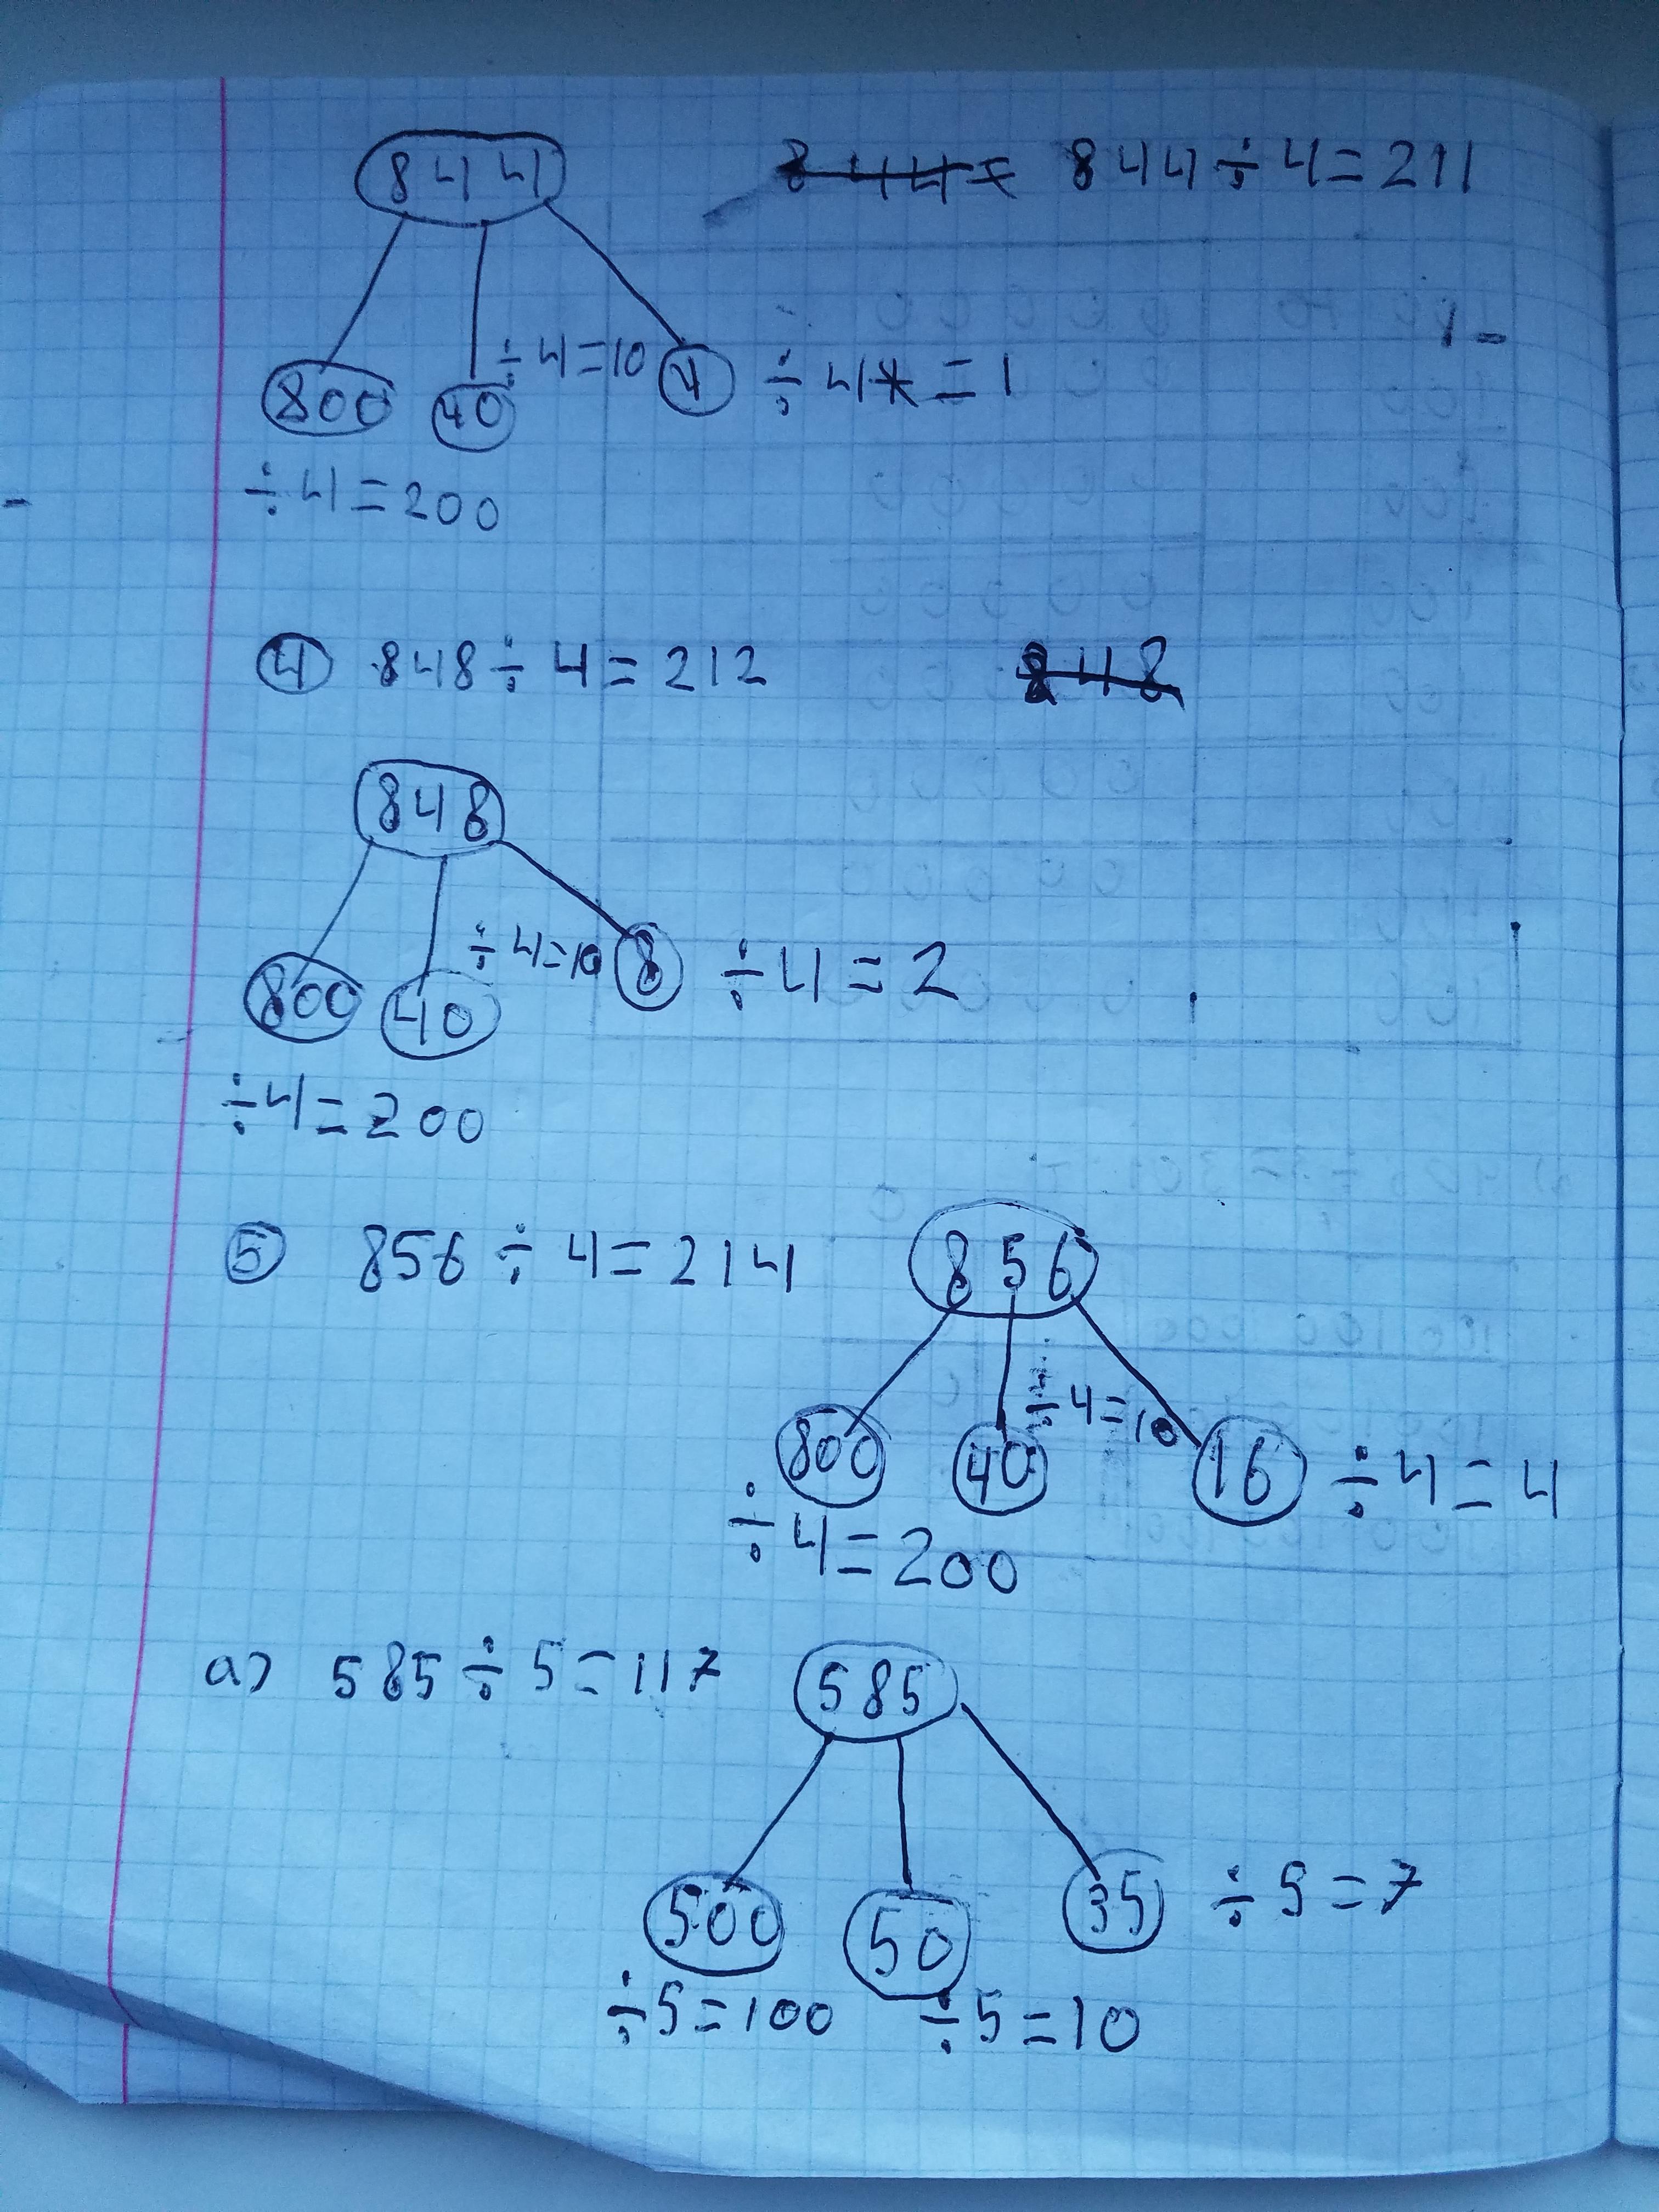 844 844 ÷ 4 = 211
÷4=10
800 40 4 ÷ 4 = 1
÷ 4 = 200
④ 848 ÷ 4 = 212 848
848
÷4=10
800 40 8 ÷ 4 = 2
÷4=200
⑤ 856 ÷ 4 = 214 856
÷4=10
800 40 16 ÷ 4 = 4
÷4=200
a) 585 ÷ 5 = 117 585
500 50 35 ÷ 5 = 7
÷5=100 ÷5=10